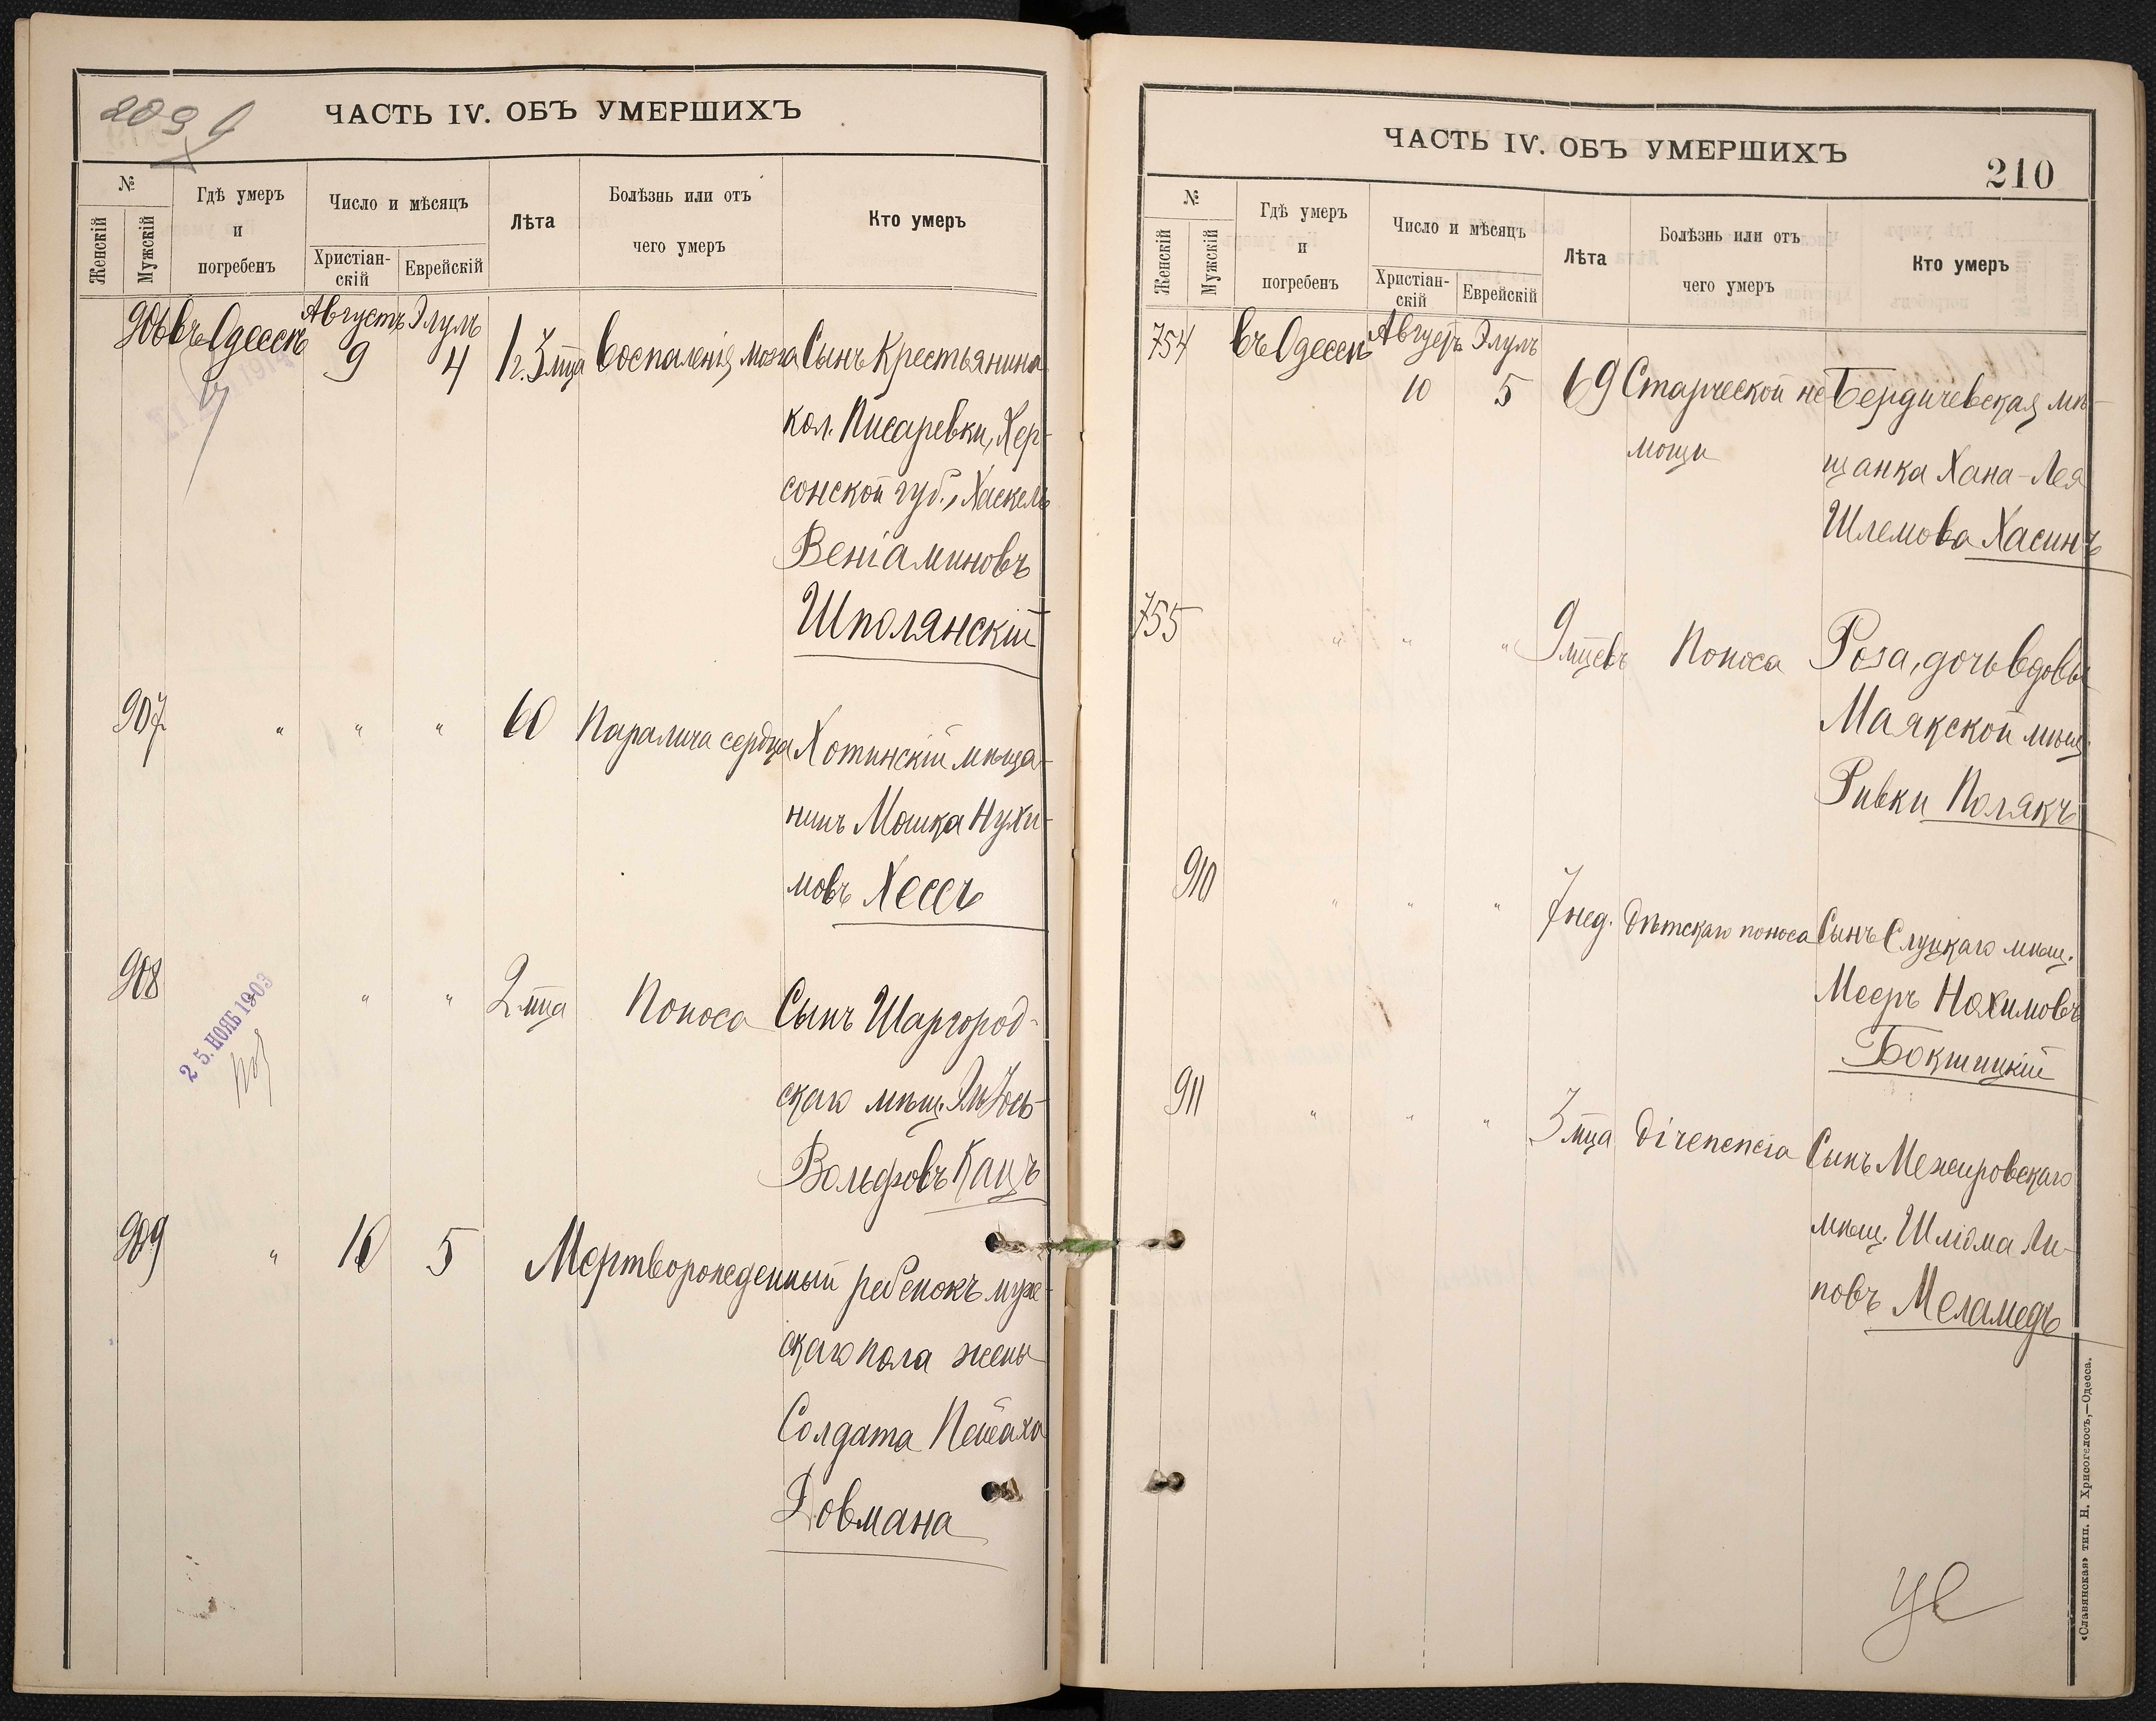 209
ЧАСТЬ IV. ОБЪ УМЕРШИХЪ
№
Женскій
Мужскій
Гдѣ умеръ
и
погребенъ
Число и мѣсяцъ
Христіан-
скій
Еврейскій
Лѣта
Болѣзнь или отъ
чего умеръ
Кто умеръ
906 въ Одессѣ Августъ 9 Элулъ 4 1 г. 3 мца Воспаленія мозга Сынъ Крестьянина
кол. Писаревки, Хер-
сонской губ., Хаскель
Веніаминовъ
Шполянскій
907 " " " 60 Паралича сердца Хотинскій мѣща-
нинъ Мошка Нухи-
мовъ Хессъ
908 " " 2 мца Поноса Сынъ Шаргород-
скаго мѣщ.
Вольфовъ Кацъ
25. НОЯБ 1903
909 " 10 5 Мертворожденный ребенокъ муж-
скаго пола жены
Солдата Пейсаха
Довмана
ЧАСТЬ IV. ОБЪ УМЕРШИХЪ
210
№
Женскій
Мужскій
Гдѣ умеръ
и
погребенъ
Число и мѣсяцъ
Христіан-
скій
Еврейскій
Лѣта
Болѣзнь или отъ
чего умеръ
Кто умеръ
754 въ Одессѣ Августъ 10 Элулъ 5 69 Старческой не- Бердичевская мѣ-
мощи щанка Хана-Лея
Шлемова Хасинъ
755 " " " 9 мцевъ Поноса Роза, дочь вдовы
Маякской мѣщ.
Ривки Полякъ
910 " " " 7 нед. Дѣтскаго поноса Сынъ Слуцкаго мѣщ.
Мееръ Нахимовъ
Бокшицкій
911 " " " 3 мца Діспепсіа Сынъ Межировскаго
мѣщ. Шлома Ли-
повъ Меламедъ
«Славянская» тип. Н. Хрисогелосъ,—Одесса.